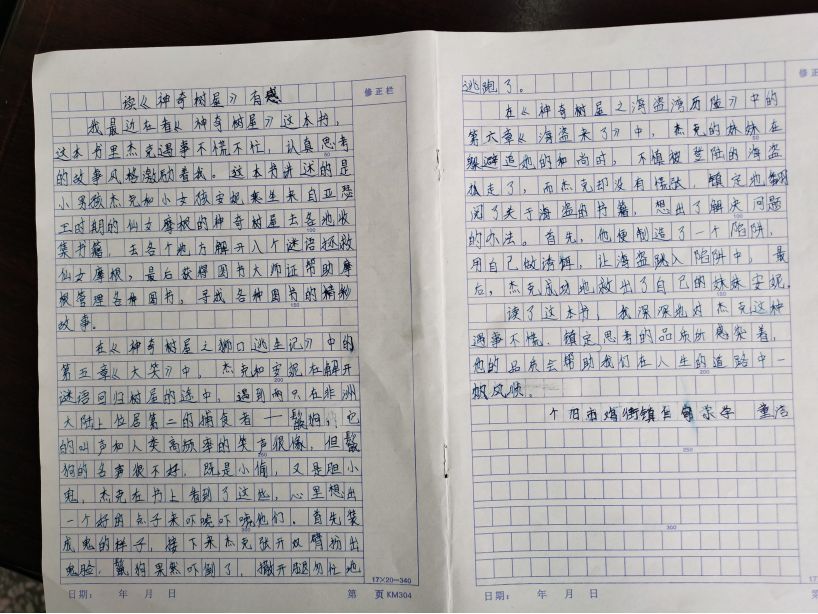 修正栏
读《神奇树屋》有感
我最近在看《神奇树屋》这本书，
这本书里杰克遇事不慌不忙，认真思考
的故事风格激励着我。这本书讲述的是
小男孩杰克和小女孩安妮乘坐来自亚瑟
王时期的仙女摩根的神奇树屋去各地收
集书籍，去各个地方解开八个谜语拯救
仙女摩根，最后获得图书大师证帮助摩
根管理各种图书，寻找各种图书的精彩
故事。
在《神奇树屋之狮口逃生记》中的
第五章《大笑》中，杰克和安妮在解开
谜语回归树屋的途中，遇到两只在非洲
大陆上位居第二的捕食者——鬣狗，它
的叫声和人类高频率的笑声很像，但鬣
狗的名声很不好，既是小偷，又是胆小
鬼，杰克在书上看到了这些，心里想出
一个好的点子来吓唬吓唬他们。首先装
成鬼的样子，接下来杰克张开双臂扮出
鬼脸，鬣狗果然吓倒了，撒开腿匆忙地
日期： 年 月 日 第 页 KM304
17×20=340
逃跑了。
在《神奇树屋之海盗湾历险》中的
第六章《海盗来了》中，杰克的妹妹在
躲避追她的和尚时，不慎被登陆的海盗
掳走了，而杰克却没有慌张，镇定地翻
阅了关于海盗的书籍，想出了解决问题
的办法。首先，他便制造了一个陷阱，
用自己做诱饵，让海盗跳入陷阱中，最
后，杰克成功地救出了自己的妹妹安妮。
读了这本书，我深深地对杰克这种
遇事不慌、镇定思考的品质所感染着，
他的品质会帮助我们在人生的道路中一
帆风顺。
个旧市鸡街镇 童洁
日期： 年 月 日